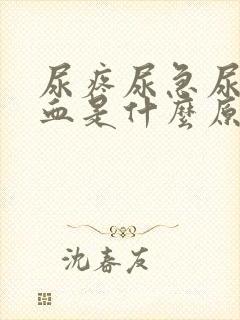 尿疼尿急尿
血是什麼原
沈春友